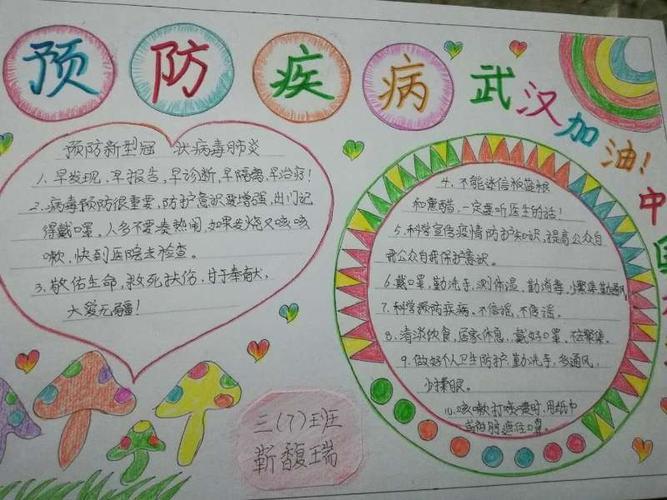 预防疾病武汉加油!
中国
预防新型冠 状病毒肺炎
1、早发现,早报告,早诊断,早隔离,早治疗!
2、病毒预防很重要,防护意识要增强,出门记
得戴口罩,人多不要凑热闹,如果发烧又咳咳
嗽,快到医院去检查。
3、敬佑生命,救死扶伤,甘于奉献,
大爱无疆!
4、不能迷信板蓝根
和熏醋,一定要听医生的话!
5、科学宣传疫情防护知识,提高公众自
我公众自我保护意识。
6、戴口罩,勤洗手,测体温,勤消毒,少聚集,勤通风
7、科学预防疾病,不信谣,不传谣。
8、清淡饮食,居家休息,戴好口罩,不聚集。
9、做好个人卫生防护,勤洗手,多通风,
少揉眼。
10、咳嗽打喷嚏时,用纸巾
三(7)班
靳馥瑞